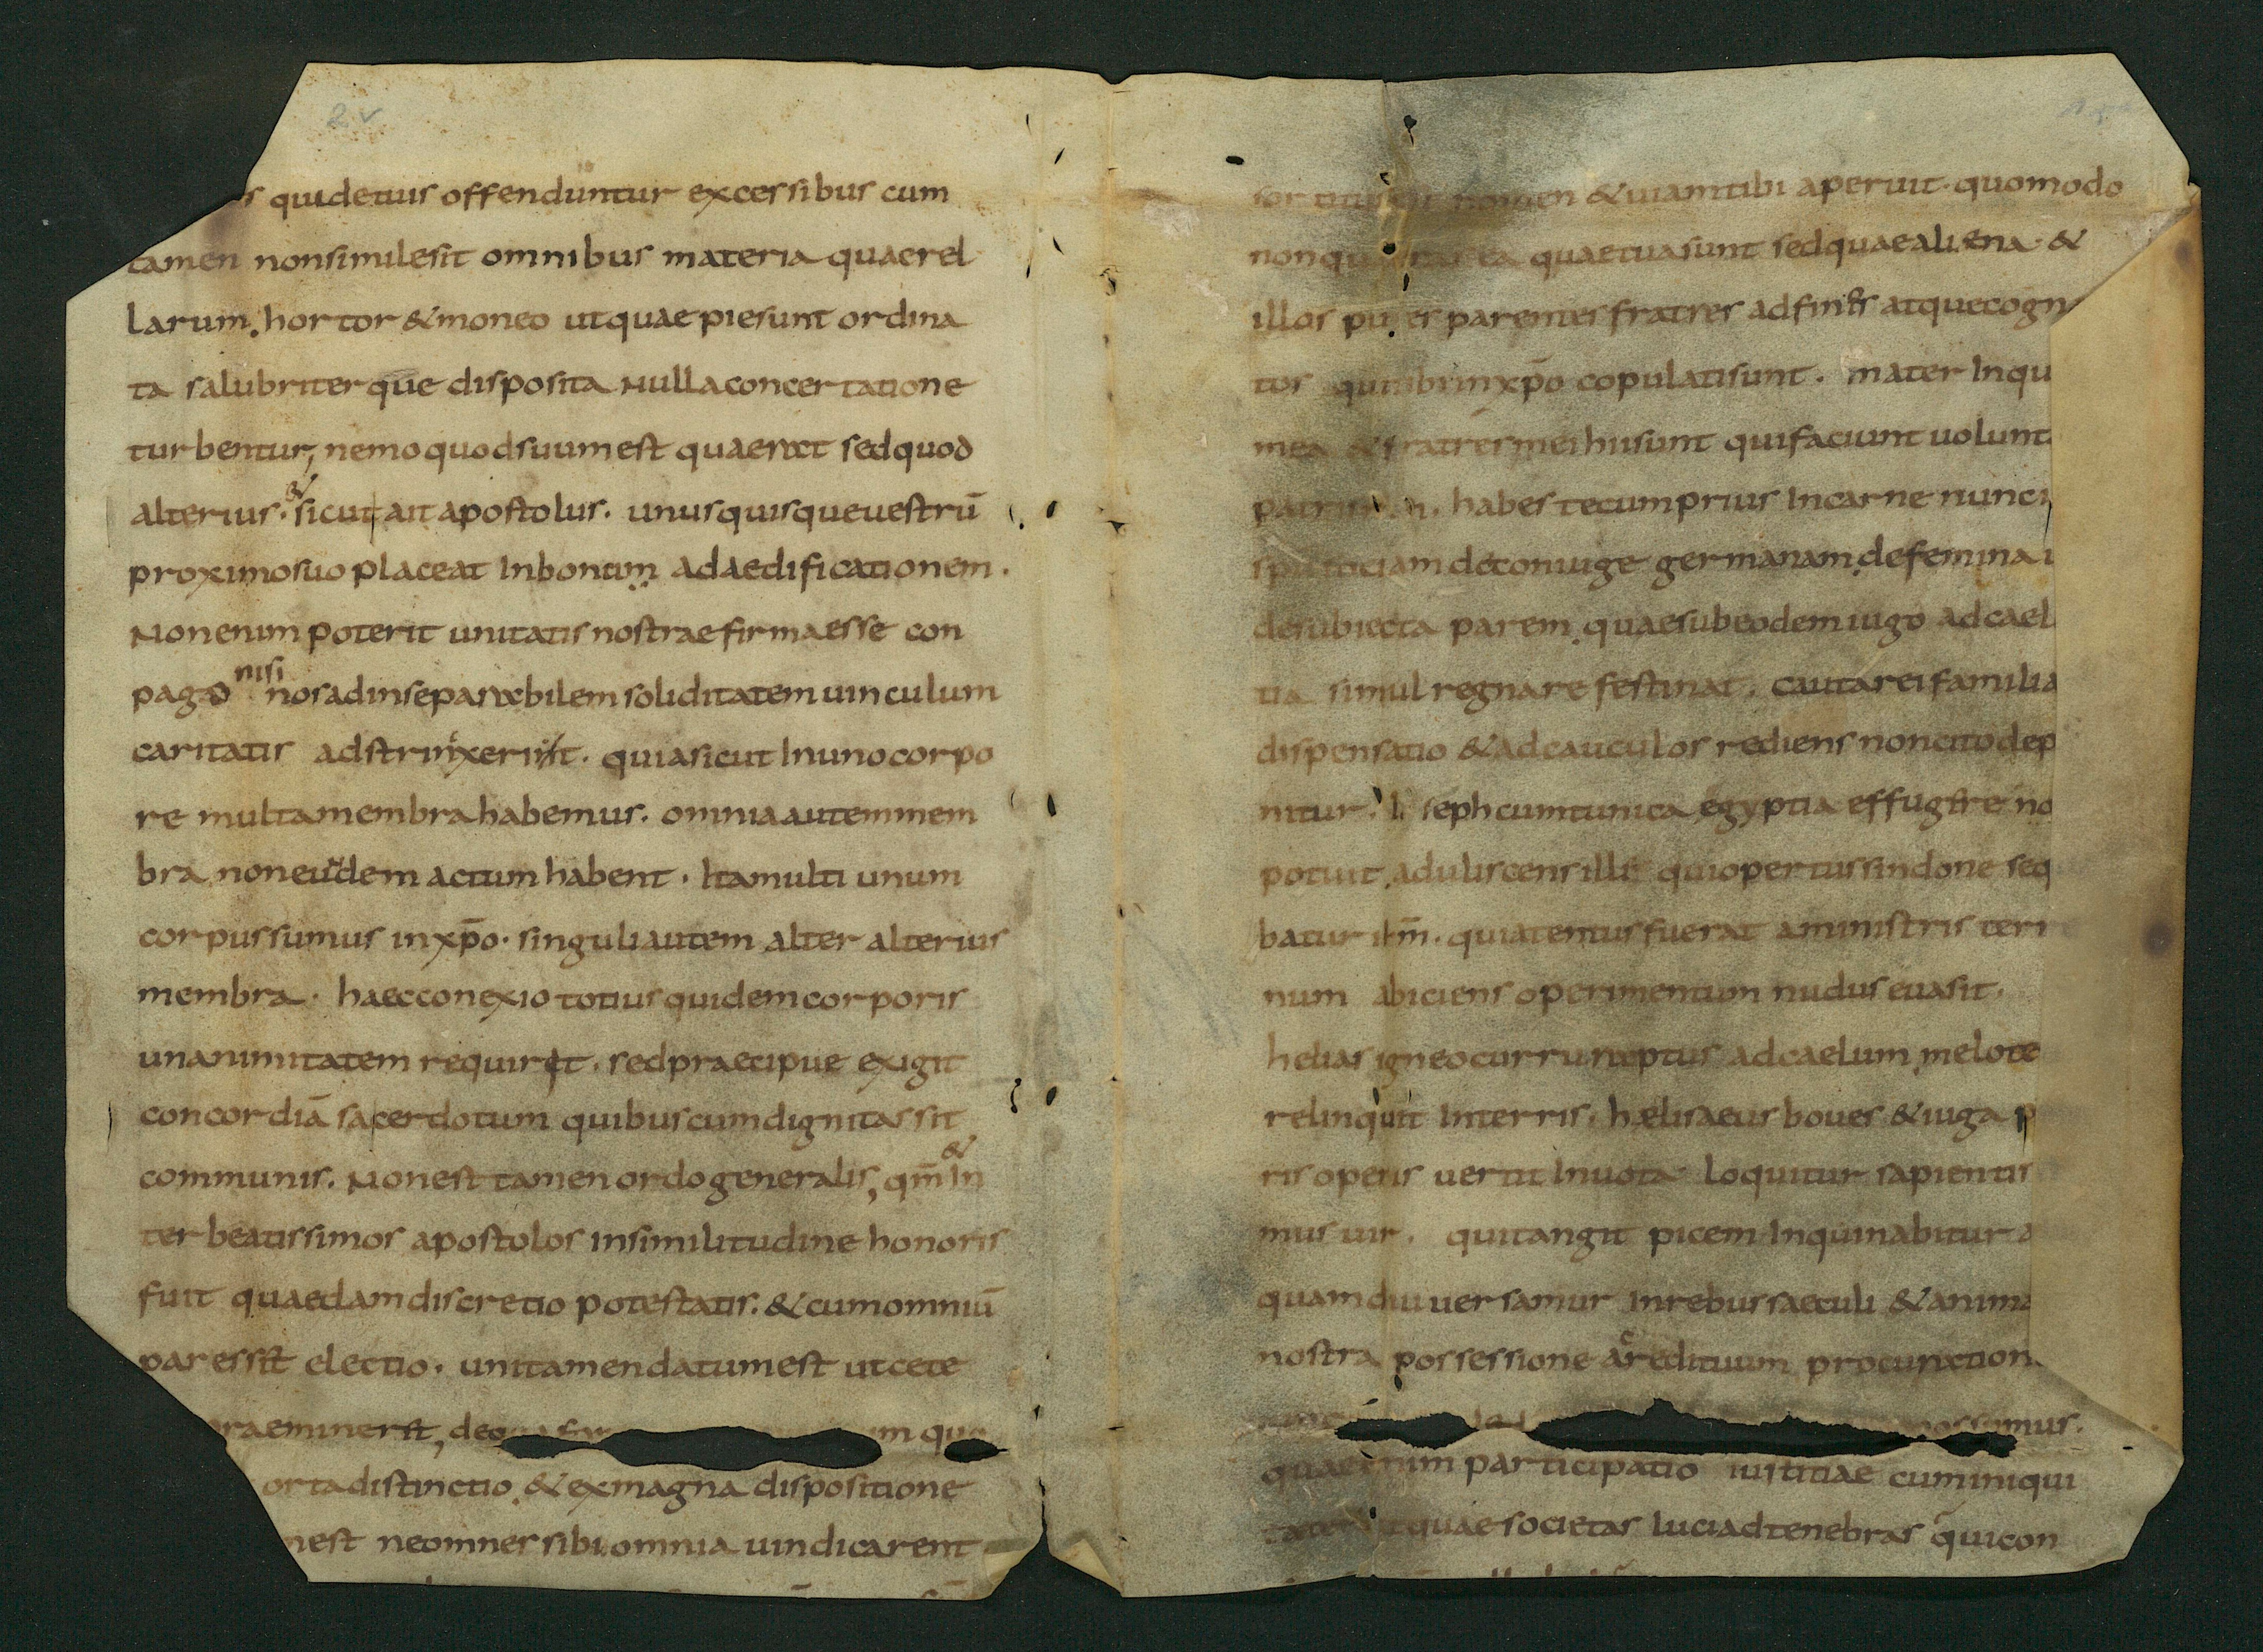 2v
s quidetuis offenduntur excessibus cum
tamen nonsimilesit omnibus materia quaerel
larum. hortor & moneo utquae piesunt ordina
ta salubriterque disposita Nullaconcertatione
turbentur, nemo quodsuumest quaerat sedquod
alterius. & sicut ait apostolus. unusquisqueuestrū
proximosuo placeat Inbonum adaedificationem.
Nonenim poterit unitatis nostrae firmaesse con
pago nisi nosadinseparabilem soliditatem uinculum
caritatis adstrinxerit. quiasicut Inunocorpo
re multamembrahabemus. omniaautemmem
bra noneudem actum habent. Itamulti unum
corpussumus inxp̄o. singuliautem alter alterius
membra. haecconexio totius quidemcorporis
unanimitatem requirit. sedpraecipue exigit
concordiā sacerdotum quibuscumdignitassit
communis. Nonest tamen ordogeneralis, qm̄ & In
ter beatissimos apostolos insimilitudine honoris
fuit quaedamdiscretio potestatis. & cumomniū
paressit electio. unitamendatumest utcete
raeminerit, um quo
ortadistinctio & exmagna dispositione
nest neomnessibi omnia uindicarent
nomen & uiamtibi aperuit. quomodo
ea quaetuasunt sedquaealiena. &
illos parentes fratres adfines atquecogn
tos copulatisunt. mater Inqu
mea & fratres mei hiisunt quifaciunt uolunt
habes tecumprius Incarne nunc
deconiuge germanam defemina
desubiecta parem. quaesubeodemiugo adcael
tia simul regnare festinat. cautareifamilia
dispensatio & adcauculos rediens noncitodep
nitur. seph cumtunica egyptia effugere no
potuit. aduliscens ille quiopertussindone seq
batur ihm̄. quiatentusfuerat aministris teri
num abiciens operimentum nudus euasit.
helias igneocurru raptus adcaelum melote
relinquit Interris. haelisaeus boues & iuga p
ris operis uertit Inuota loquitur sapientis
mus uir. quitangit picem Inquinabitur a
quamdiu uersamur Inrebussaeculi & anima
nostra possessione procuration
possumus.
participatio iustitiae cuminiqui
quaesocietas luciadtenebras quicon